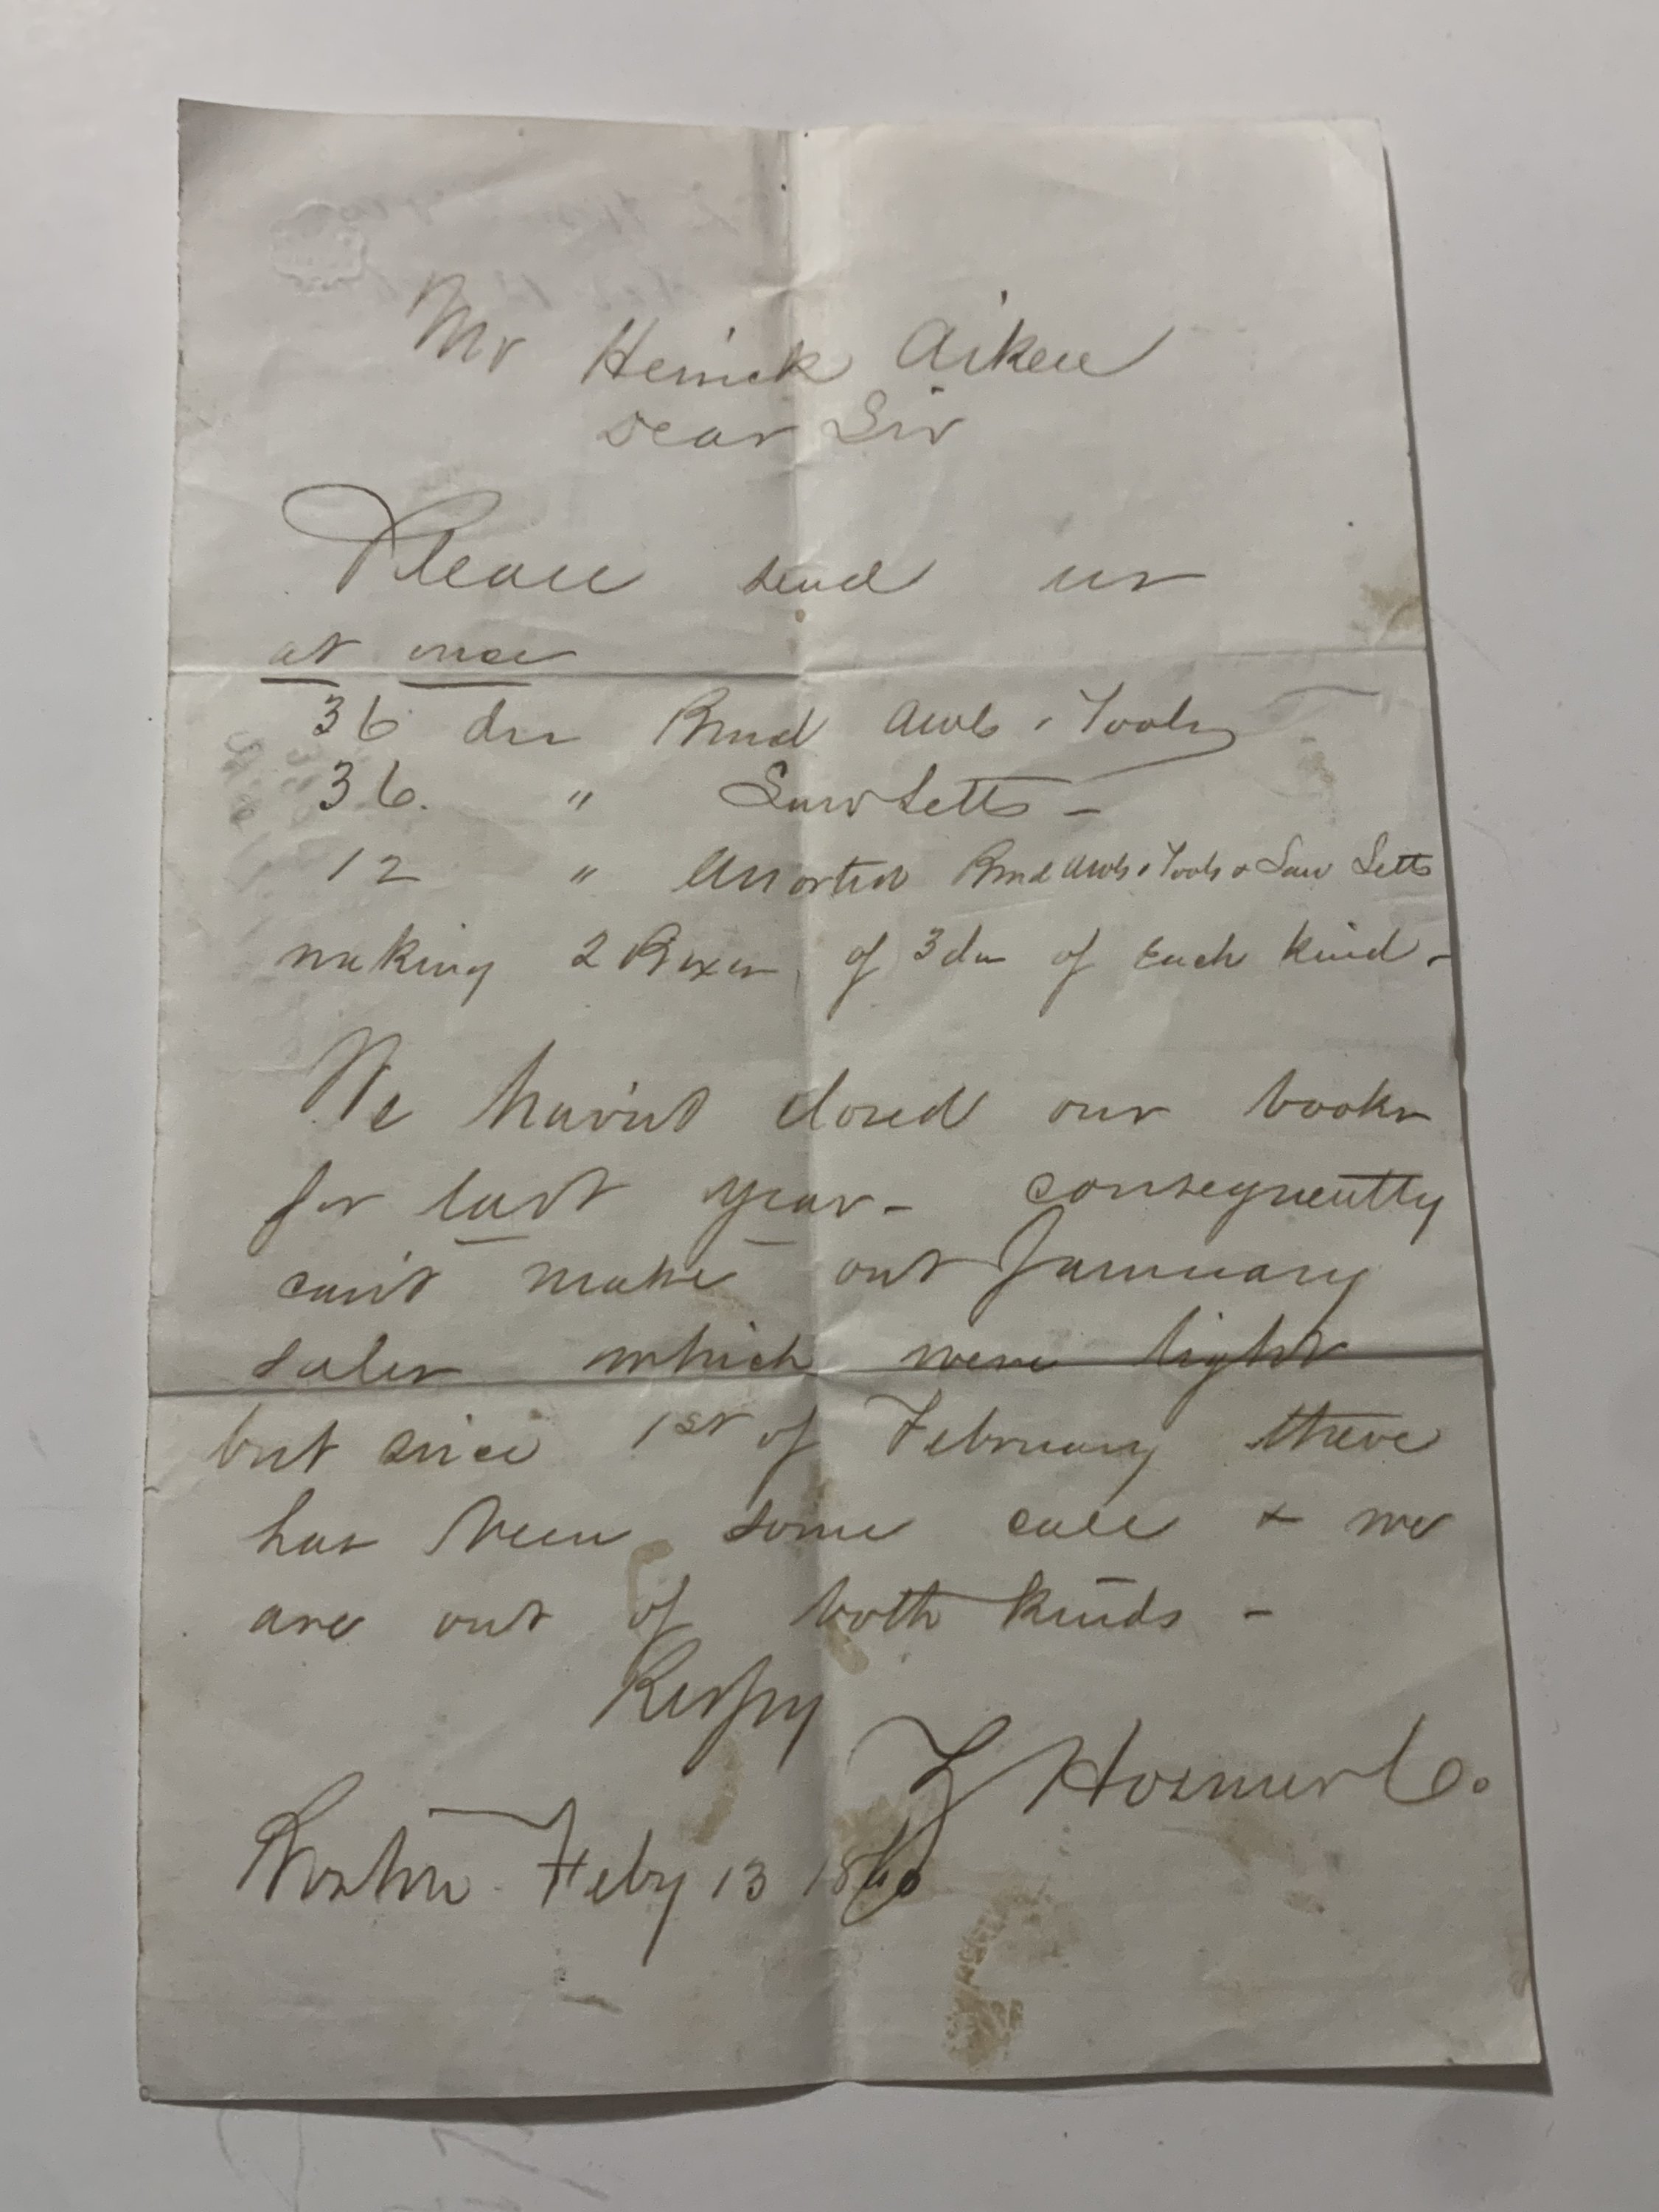 Mr Herrick Aiken
Dear Sir
Please send us
at once
36 doz Brad Awls & Tools
36. " Saw Setts -
12 " Assorted Brad Awls & Tools & Saw Setts
making 2 Boxes of 3 doz of Each kind -
We havn't closed our books
for last year - consequently
can't make out January
sales which were light
but since 1st of February there
has been some call & we
are out of both kinds -
Respy
Hosmer & Co.
Boston Feby 13 1860